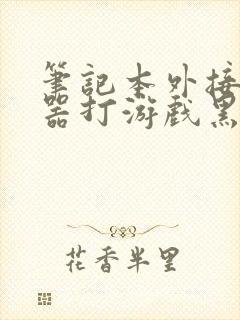 筆記本外接
器打游戲黑
花香半里